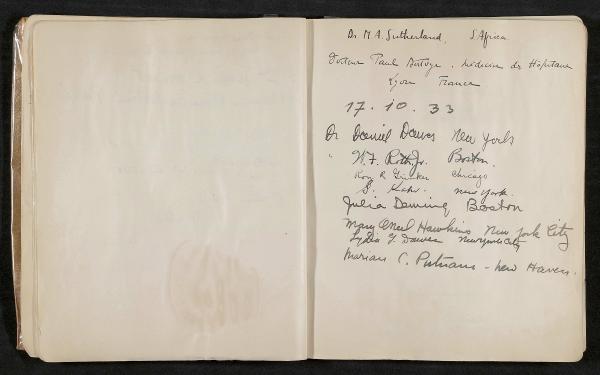 Dr. M. A. Sutherland, S. Africa
Docteur Paul médecin des Hôpitaux
Lyon France
17.10.33
Dr Daniel Dawes New York
" Boston.
Roy R. Grinker Chicago
S. New York.
Julia Deming Boston
Mary O'Neil Hawkins New York City
Lydia G. Dawes New York City
Marian C. Putnam - New Haven.